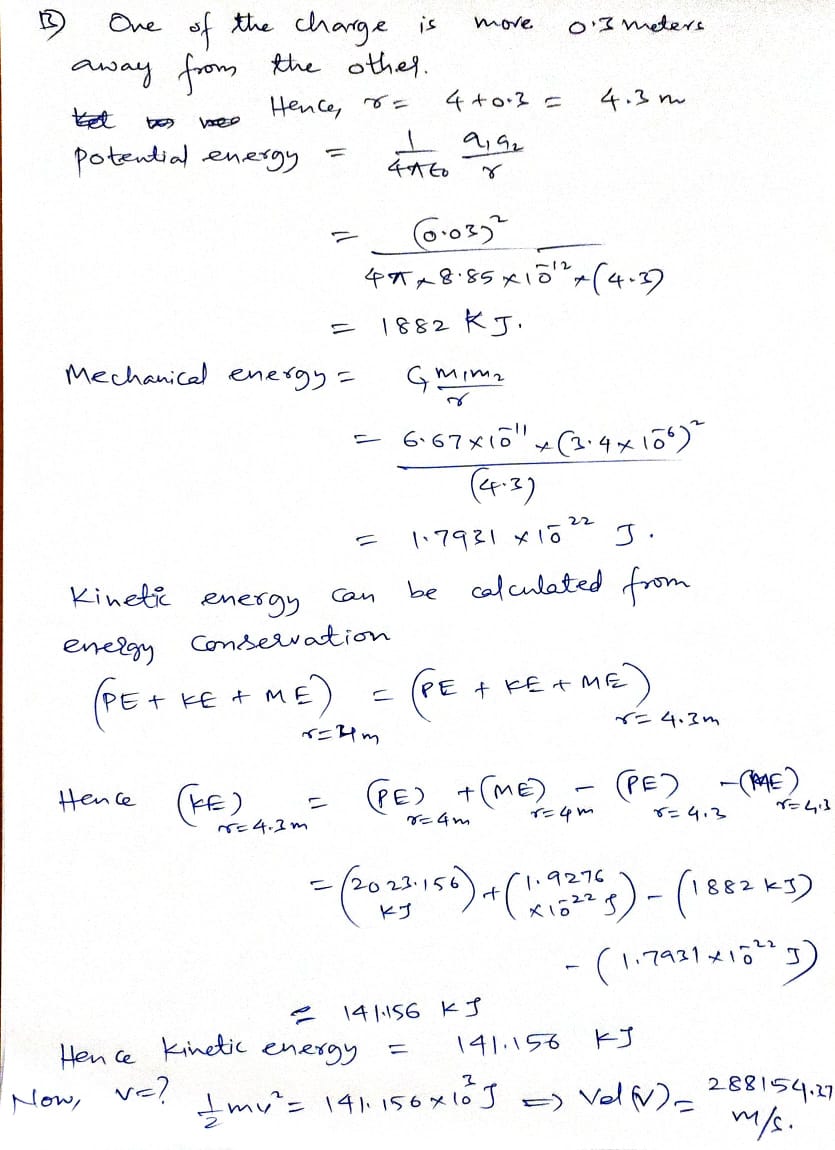 B) One of the charge is more 0.3 meters
away from the other.
Hence, r = 4 + 0.3 = 4.3 m
Potential energy = 1/4πε0 q1q2/r
= (0.03)²/4π × 8.85 × 10^-12 × (4.3)
= 1882 KJ.
Mechanical energy = G m1m2/r
= 6.67×10^-11 × (3.4×10^-6)²/(4.3)
= 1.7931 × 10^-22 J.
Kinetic energy can be calculated from
energy conservation
(PE + KE + ME) r=4m = (PE + KE + ME) r=4.3m
Hence (KE) r=4.3m = (PE) r=4m + (ME) r=4m - (PE) r=4.3 - (ME) r=4.3
= (2023.156 KJ) + (1.9276 ×10^-22 J) - (1882 KJ)
- (1.7931×10^-22 J)
= 141.156 KJ
Hence Kinetic energy = 141.156 KJ
Now, v=? 1/2 mv² = 141.156×10^3 J => Vel(v) = 288154.27 m/s.